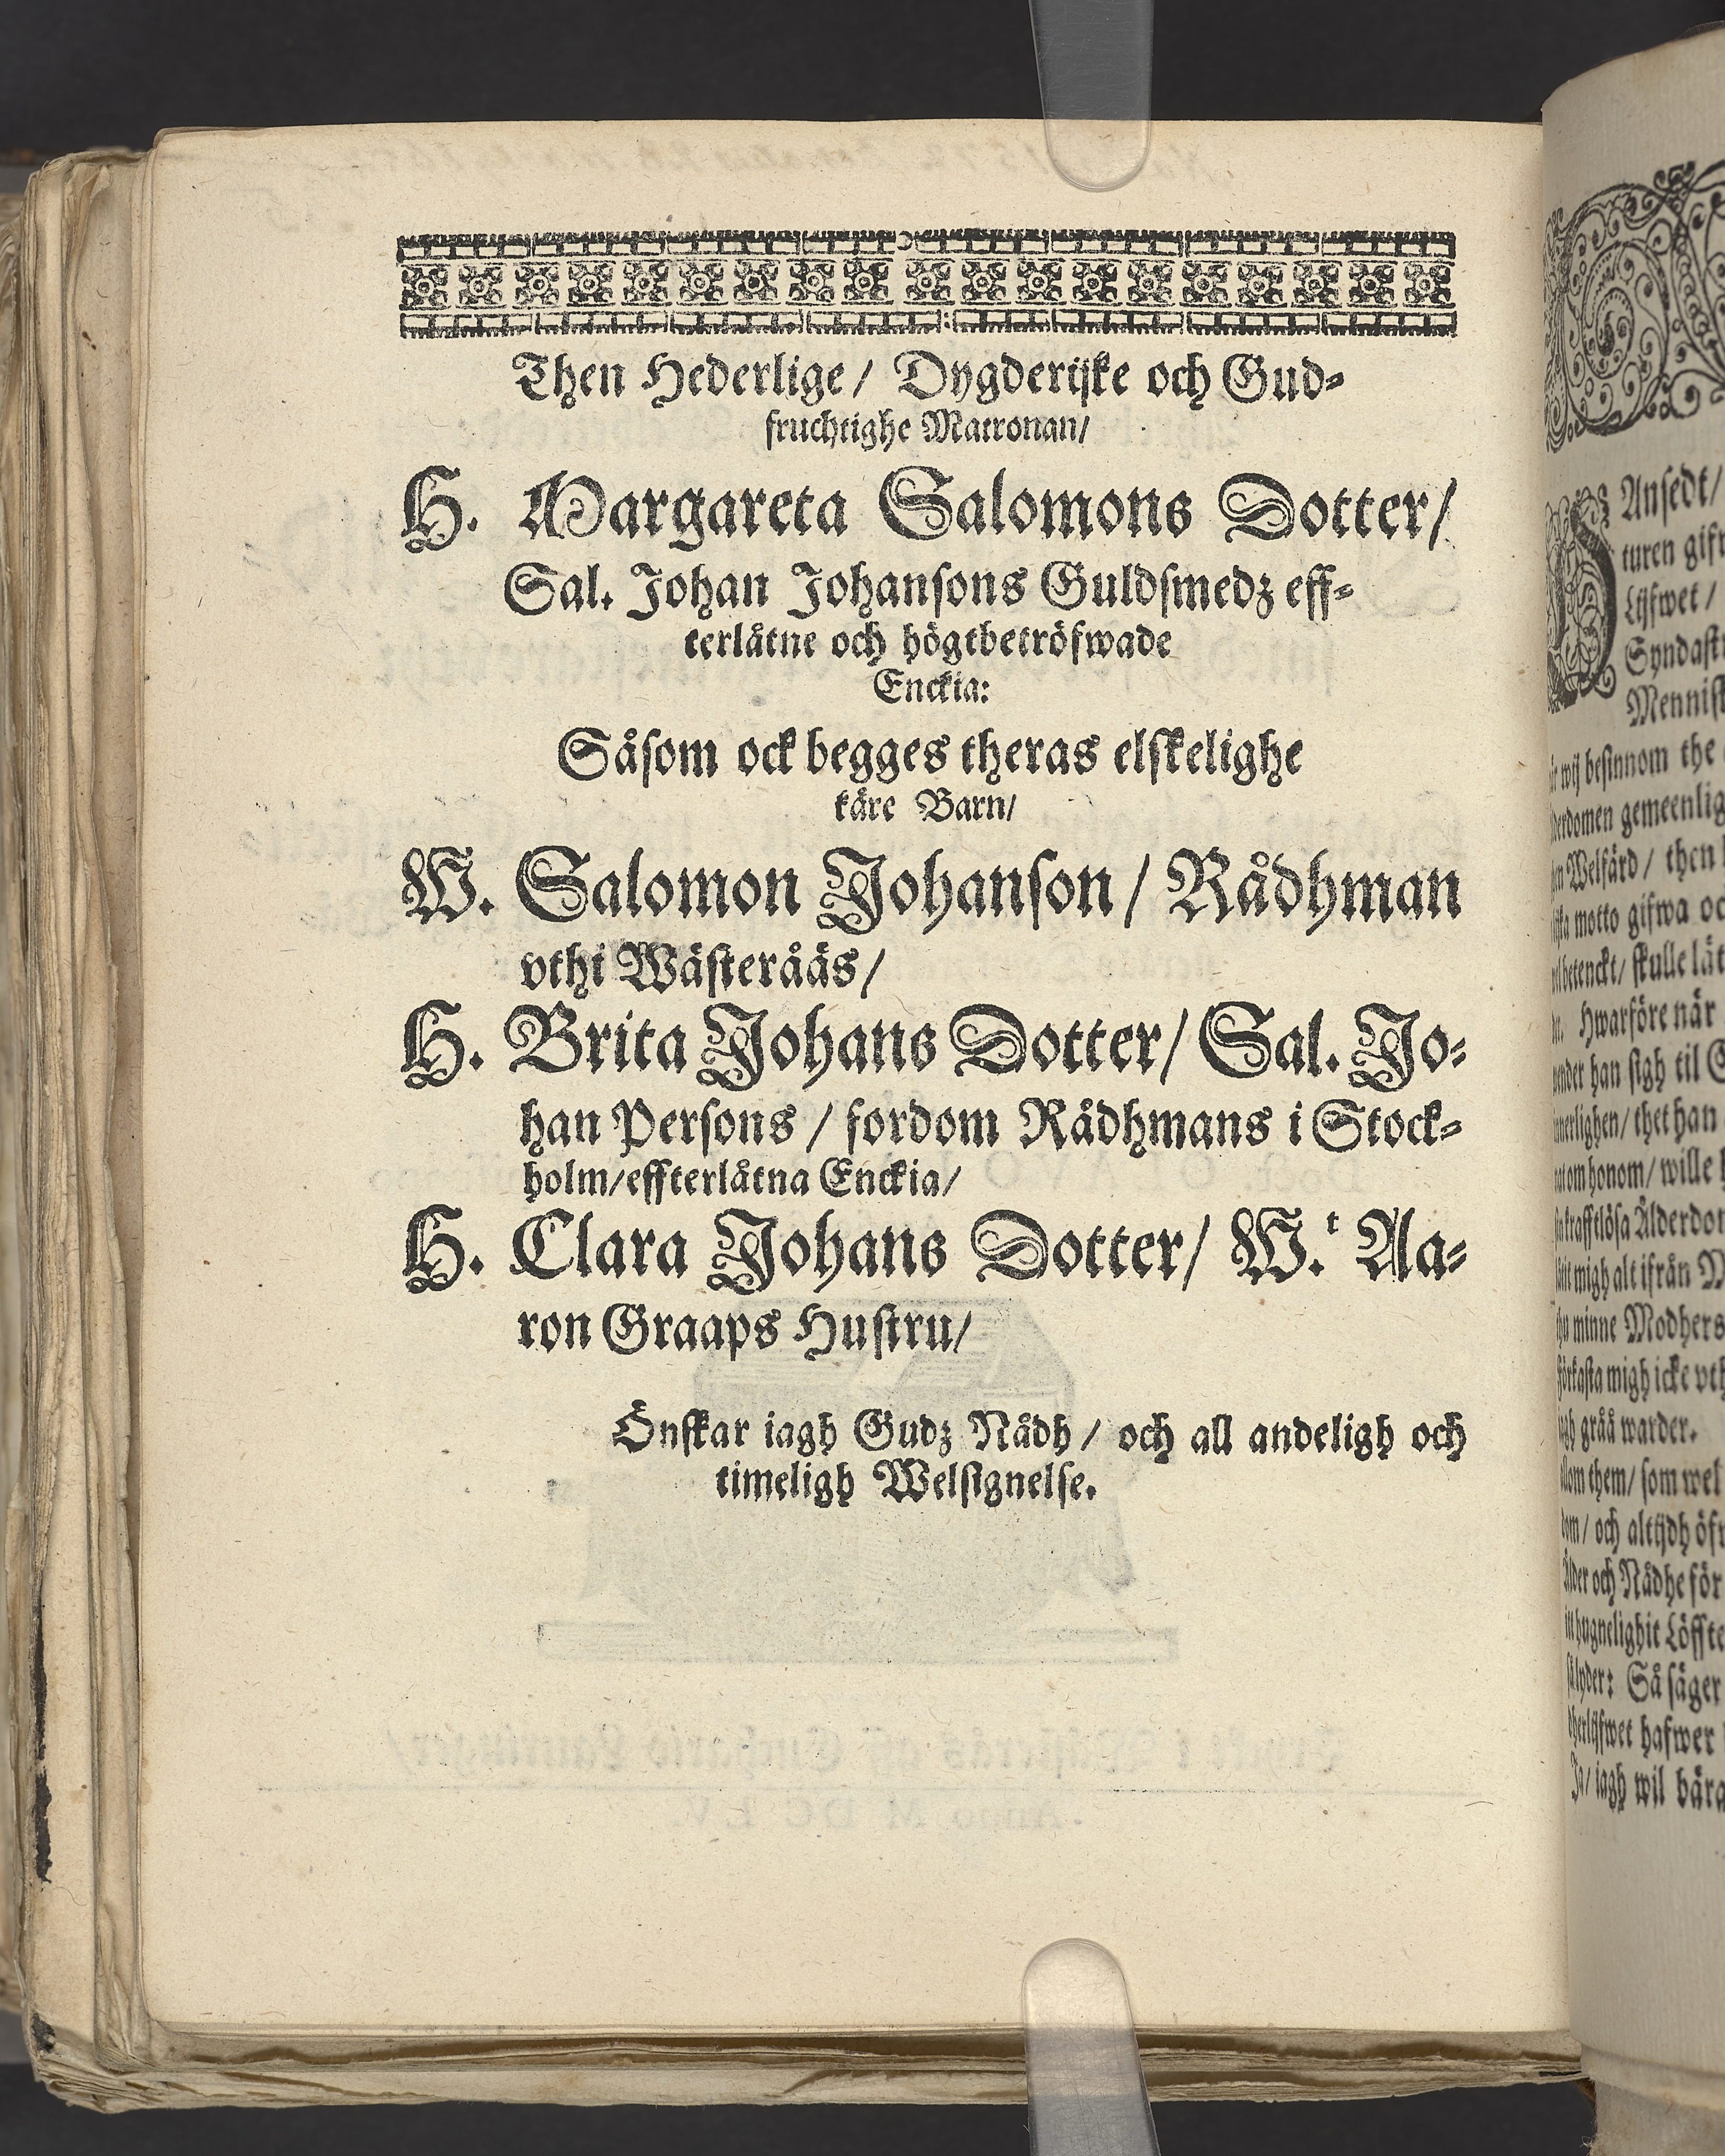 Then Hederlige/ Dygderijke och Gud-
fruchtighe Matronan/
H. Margareta Salomons Dotter/
Sal. Johan Johansons Guldsmedz eff-
terlåtne och högtbetröfwade
Enckia:
Såsom ock begges theras elskelighe
käre Barn/
W. Salomon Johanson/ Rådhman
vthi Wästeråås/
H. Brita Johans Dotter/ Sal. Jo-
han Persons/ fordom Rådhmans i Stock-
holm/effterlåtna Enckia/
H. Clara Johans Dotter/ W.t Aa-
ron Graaps Hustru/
Önskar iagh Gudz Nådh/ och all andeligh och
timeligh Welsignelse.
Ansedt/
turen
Lijfwet/
wij besinnom the
gemeenlig
Welfärd/ then
motto gifwa oc
betenckt/ skulle låt
Hwarföre när
han sigh til
thet han
om honom/ wille
Ålderdom
migh alt ifrån
minne Modhers
migh icke vth
gråå warder.
them/ som wel
och altijdh öfw
och Nådhe för
Löffte
Så säger
hafwer
Ja/ iagh wil bära